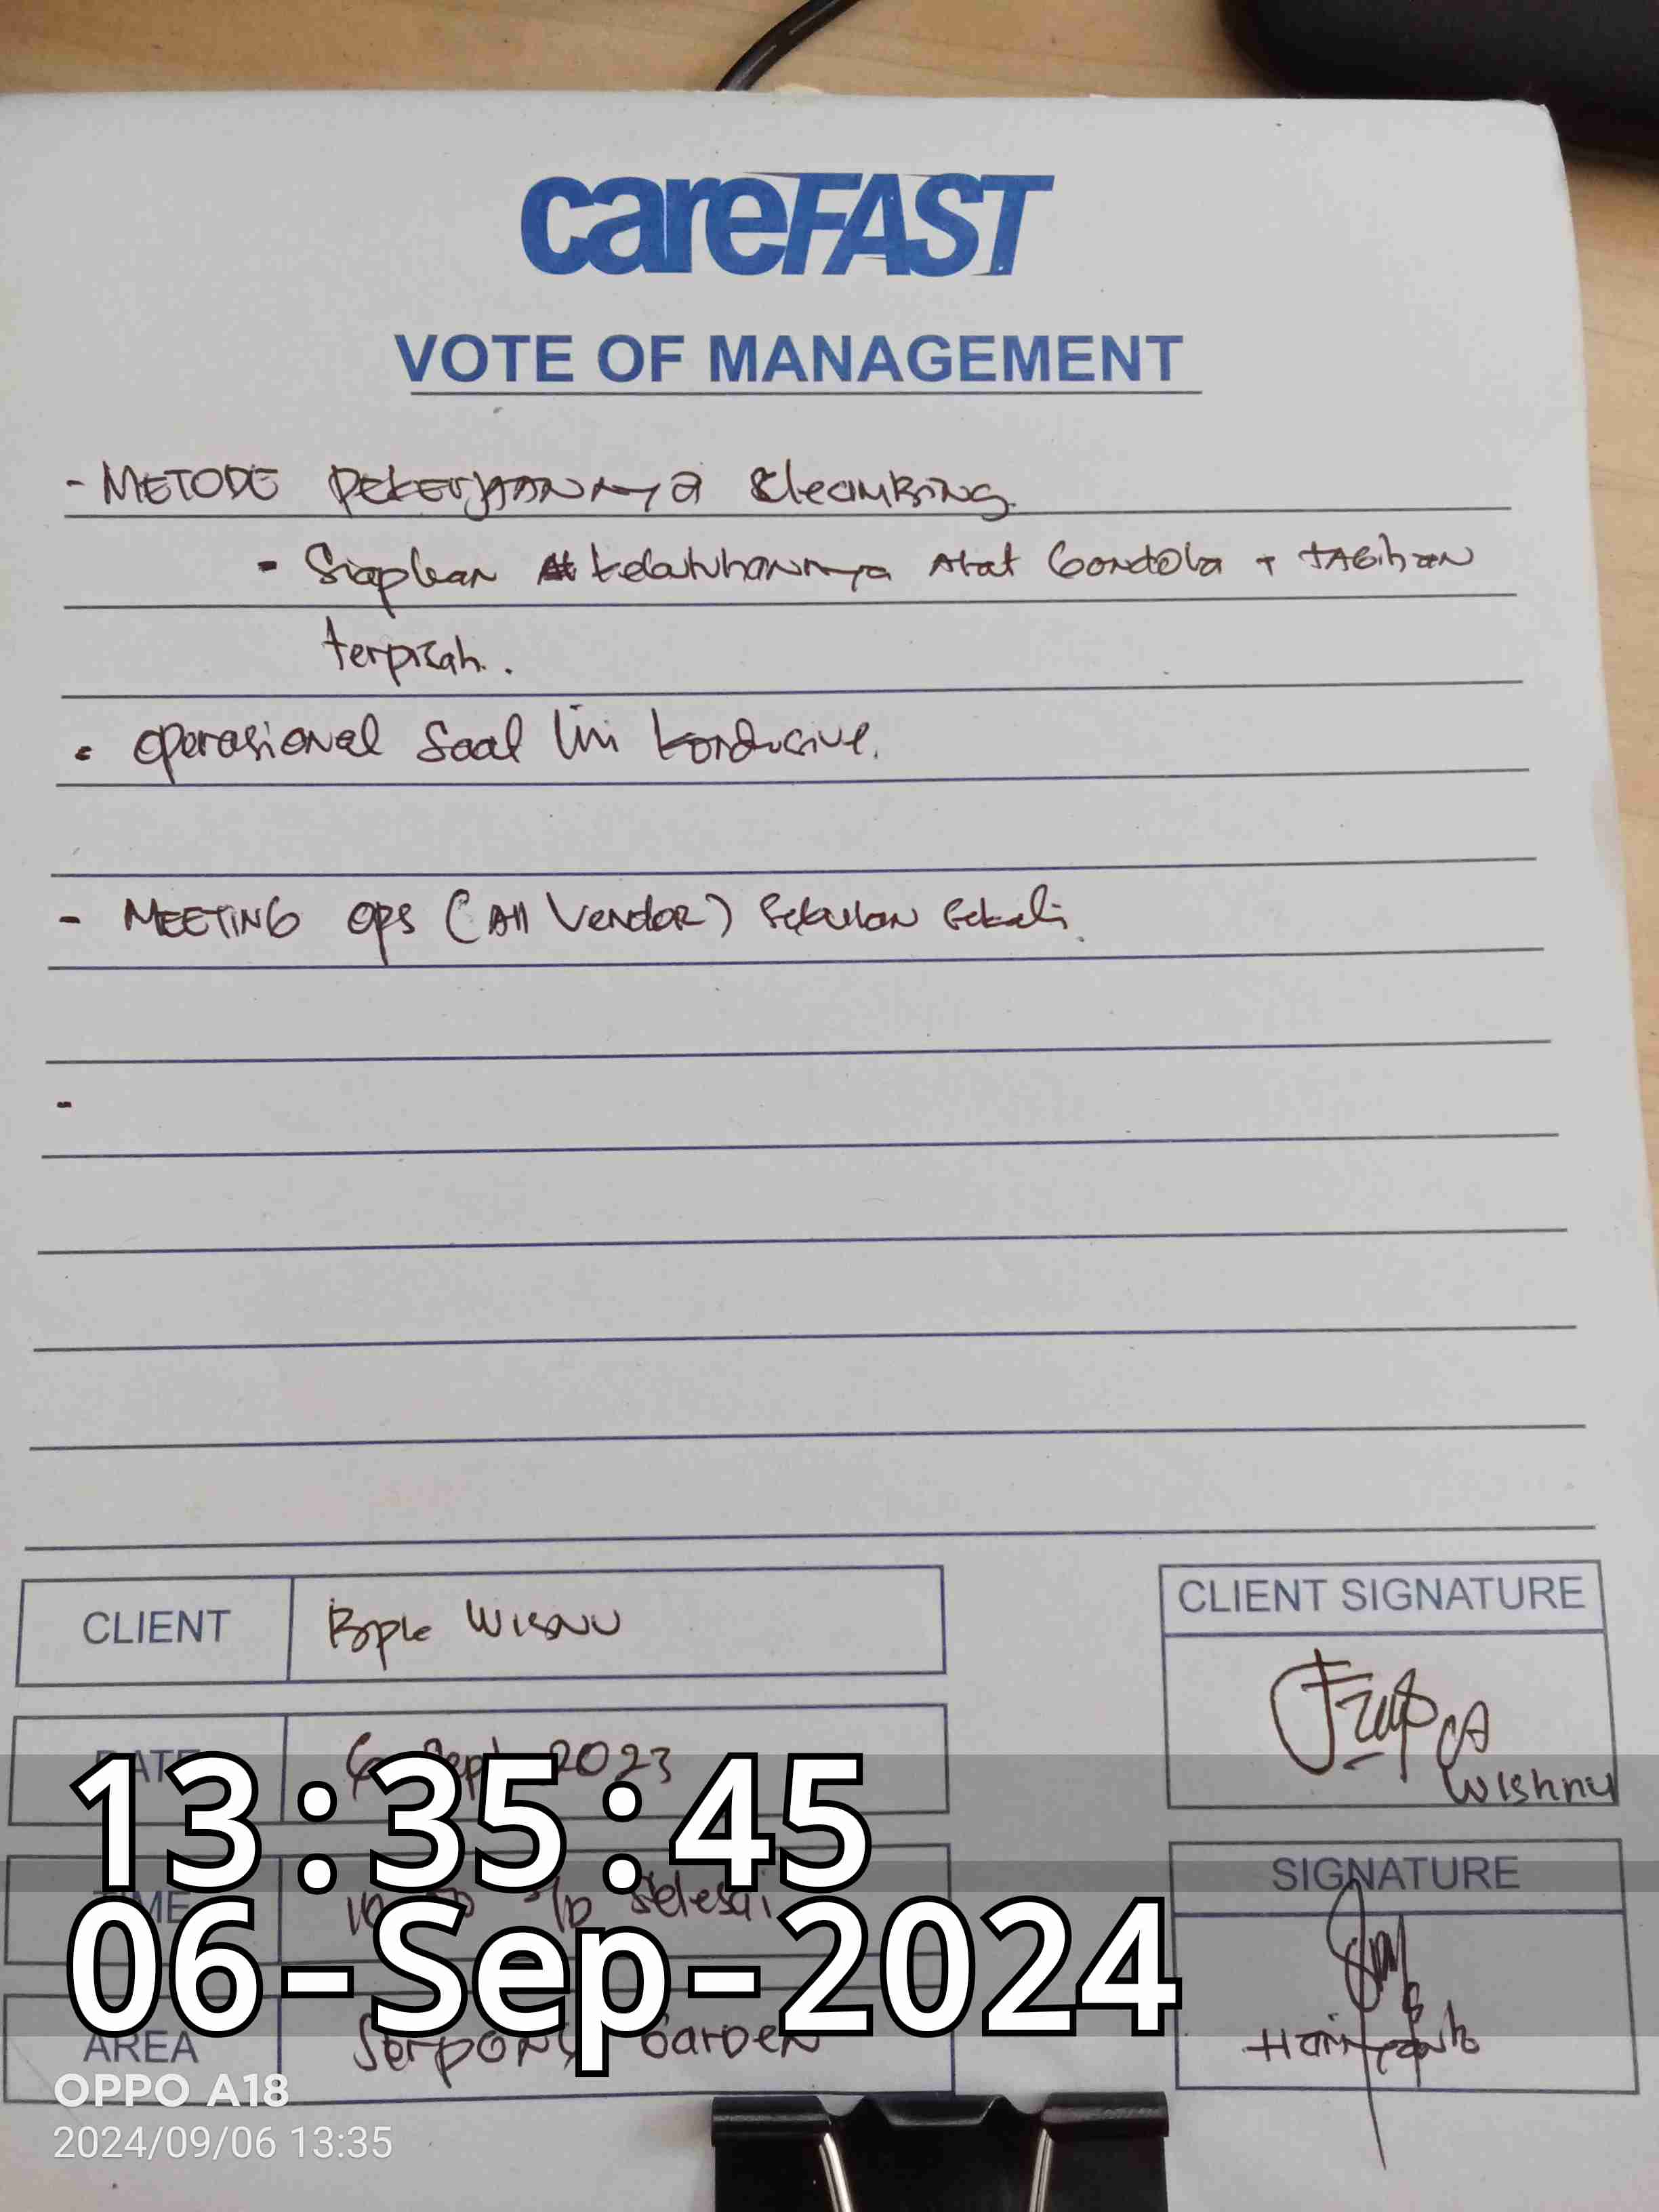 careFAST
VOTE OF MANAGEMENT
- METODE PEKERJAANNYA
- Siapkan kebutuhannya Alat Gondola + TAGihan
terpisah.
operasional Saat ini kondusive.
- MEETING OPS (All Vendor) Sebulan Sekali.
-
CLIENT
Bpk Wisnu
CLIENT SIGNATURE
Wishnu
DATE
6 Sept 2023
13:35:45
TIME
s/d Selesai
SIGNATURE
Hariyanto
06-Sep-2024
AREA
Serpong Garden
OPPO A18
2024/09/06 13:35